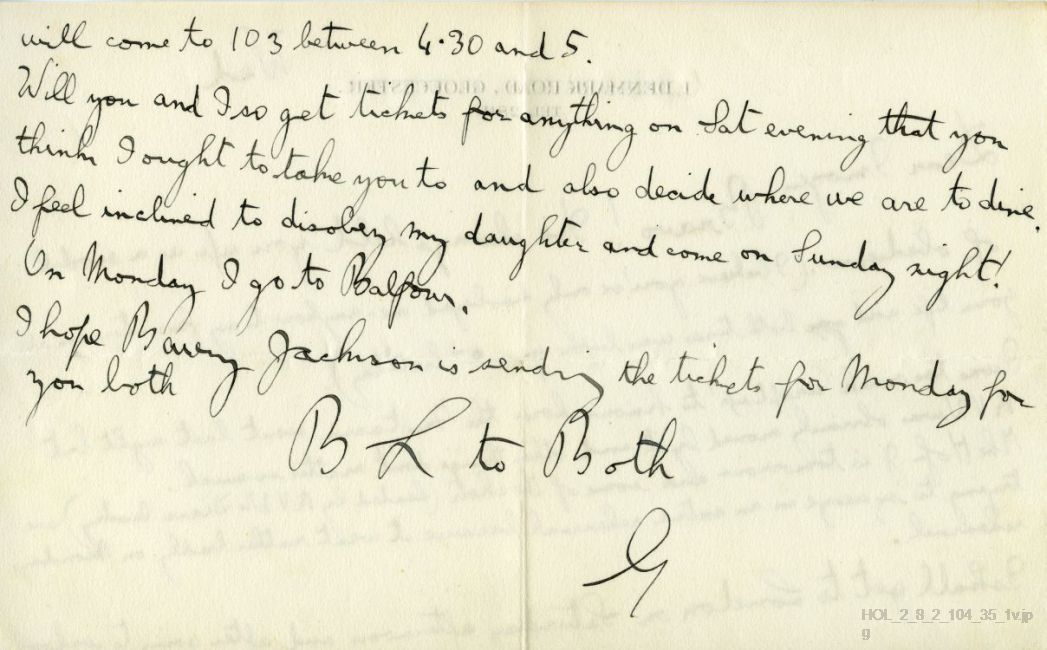 will come to 103 between 4·30 and 5.
Will you and I so get tickets for anything on Sat evening that you
think I ought to take you to and also decide where we are to dine.
I feel inclined to disobey my daughter and come on Sunday night!
On Monday I go to Balfour.
I hope Barry Jackson is sending the tickets for Monday for
you both
B L to Both
G
HOL_2_8_2_104_35_1v.jp
g